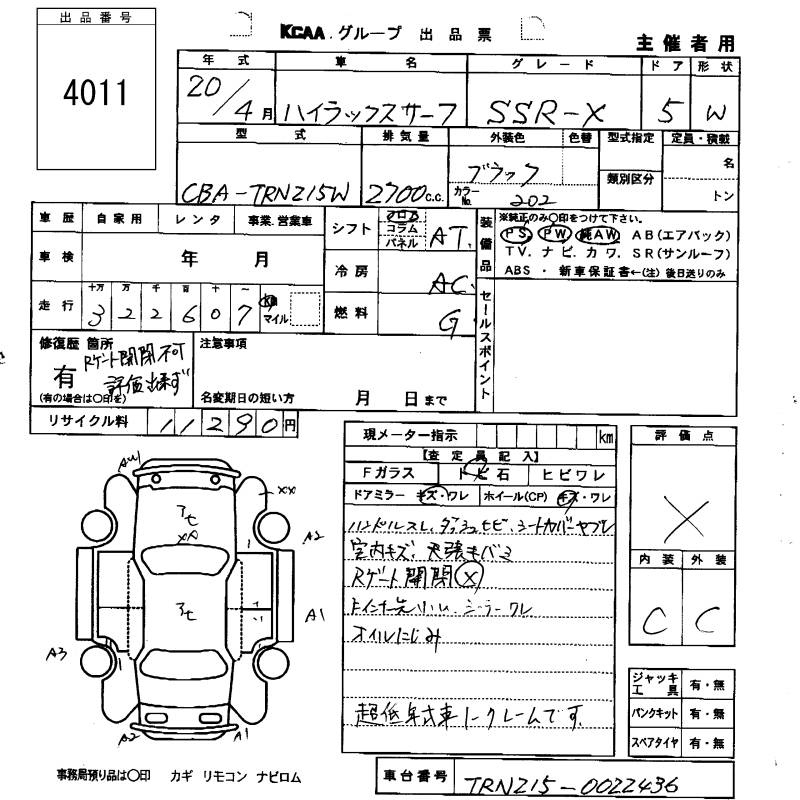 出品番号
4011
KCAA.グループ 出品票
主催者用
年式 車名 グレード ドア 形状
20/4月 ハイラックスサーフ SSR-X 5 W
型式 排気量 外装色 色替 型式指定 定員・積載
CBA-TRN215W 2700c.c. ブラック 類別区分 名
カラーNo. 202 トン
車歴 自家用 レンタ 事業.営業車
車検 年 月
走行 十万 万 千 百 十 一
322607 km マイル
シフト フロア コラム パネル AT
冷房 AC
燃料 G
装備品
※純正のみ〇印をつけて下さい。
PS PW 純AW AB(エアバック)
TV. ナビ. カワ. SR(サンルーフ)
ABS ・ 新車保証書←(注) 後日送りのみ
セールスポイント
修復歴 箇所
有 Rゲート開閉不可
評価出来ず
(有の場合は〇印を)
注意事項
名変期日の短い方 月 日まで
リサイクル料 11290円
現メーター指示 km
【査定員記入】
Fガラス トビ石 ヒビワレ
ドアミラー キズ・ワレ ホイール(CP) キズ・ワレ
ハンドルスレ、ダッシュヒビ、シートカバーヤブレ
室内キズ、天張キバミ
Rゲート開閉X
シーラーワレ
オイルにじみ
超低年式車ノークレームです。
評価点
X
内装 外装
C C
ジャッキ工具 有・無
パンクキット 有・無
スペアタイヤ 有・無
XX
A2
A1
A3
A2
A1
事務局預り品は〇印 カギ リモコン ナビロム
車台番号 TRN215-0022436